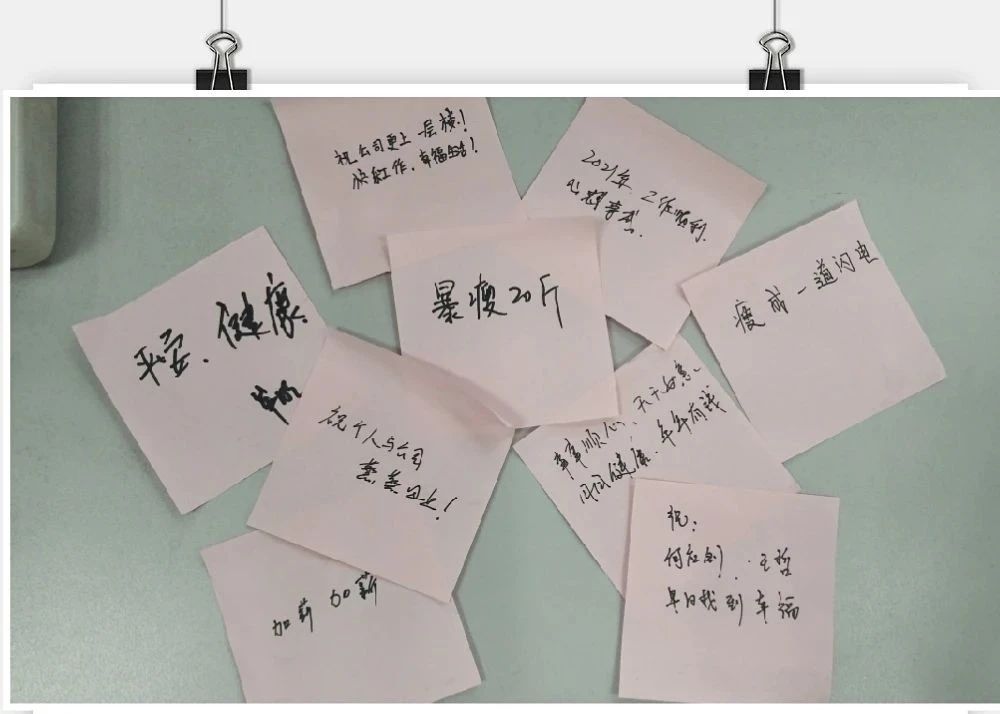 祝公司更上一层楼!
快乐工作,幸福生活!
2021年,工作顺利,
心想事成。
平安、健康
暴瘦20斤
瘦成一道闪电
祝个人与公司
蒸蒸日上!
天天好意、
事事顺心、
日日健康、年年有钱
加薪 加薪
祝:
王哲
早日找到幸福